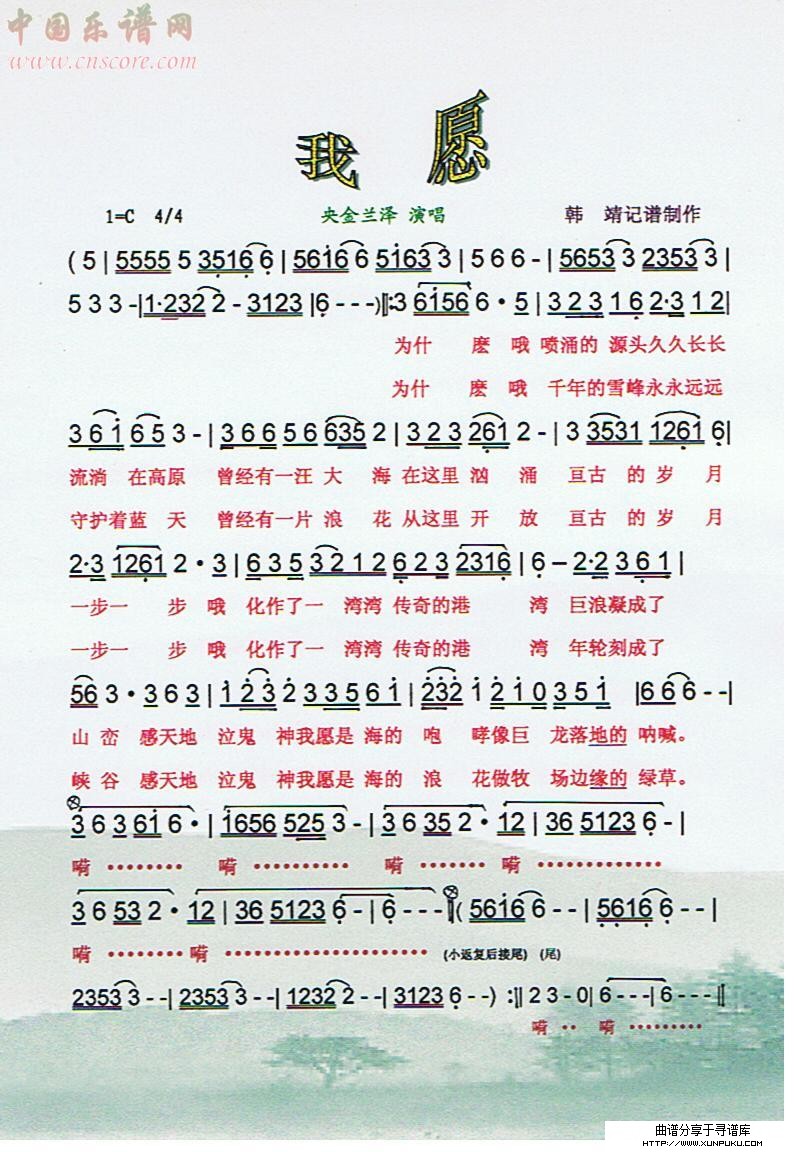 中国乐谱网
www.cnscore.com
我 愿
1=C 4/4 央金兰泽 演唱 韩 靖记谱制作
( 5 | 5555 5 3516 6 | 5616 6 5163 3 | 5 6 6 - | 5653 3 2353 3 |
5 3 3 -| 1·232 2 - 3123 |6 - - -)‖: 3 6156 6 · 5 | 3 2 3 1 6 2·3 1 2|
为什 麽 哦 喷涌的 源头久久长长
为什 麽 哦 千年的雪峰永永远远
3 6 1 6 5 3 - | 3 6 6 5 6 635 2 | 3 2 3 261 2 - | 3 3531 1261 6|
流淌 在高原 曾经有一汪 大 海 在这里 汹 涌 亘古 的 岁 月
守护着蓝 天 曾经有一片 浪 花 从这里 开 放 亘古 的 岁 月
2·3 1261 2 · 3 | 6 3 5 3 2 1 2 6 2 3 2316 | 6 – 2·2 3 6 1 |
一步一 步 哦 化作了一 湾湾 传奇的港 湾 巨浪凝成了
一步一 步 哦 化作了一 湾湾 传奇的港 湾 年轮刻成了
56 3 · 3 6 3 | 1 2 3 2 3 3 5 6 1 | 232 1 2 1 0 3 5 1 |6 6 6 - - |
山 峦 感天地 泣鬼 神我愿是 海的 咆 哮像巨 龙落地的 呐喊。
峡 谷 感天地 泣鬼 神我愿是 海的 浪 花做牧 场边缘的 绿草。
3 6 3 61 6 · | 1656 525 3 - | 3 6 35 2 · 12 | 36 5123 6 - |
嗬 ········ 嗬 ·········· 嗬 ······· 嗬 ·············
3 6 53 2 · 12 | 36 5123 6 - | 6 - - - ‖( 5616 6 - - | 5616 6 - - |
嗬 ········ 嗬 ····················· (小返复后接尾) (尾)
2353 3 - - | 2353 3 - - | 1232 2 - - | 3123 6 - - ) :‖ 2 3 - 0| 6 - - - | 6 - - - ‖
嗬 ·· 嗬 ···········
曲谱分享于寻谱库
HTTP://WWW.XUNPUKU.COM